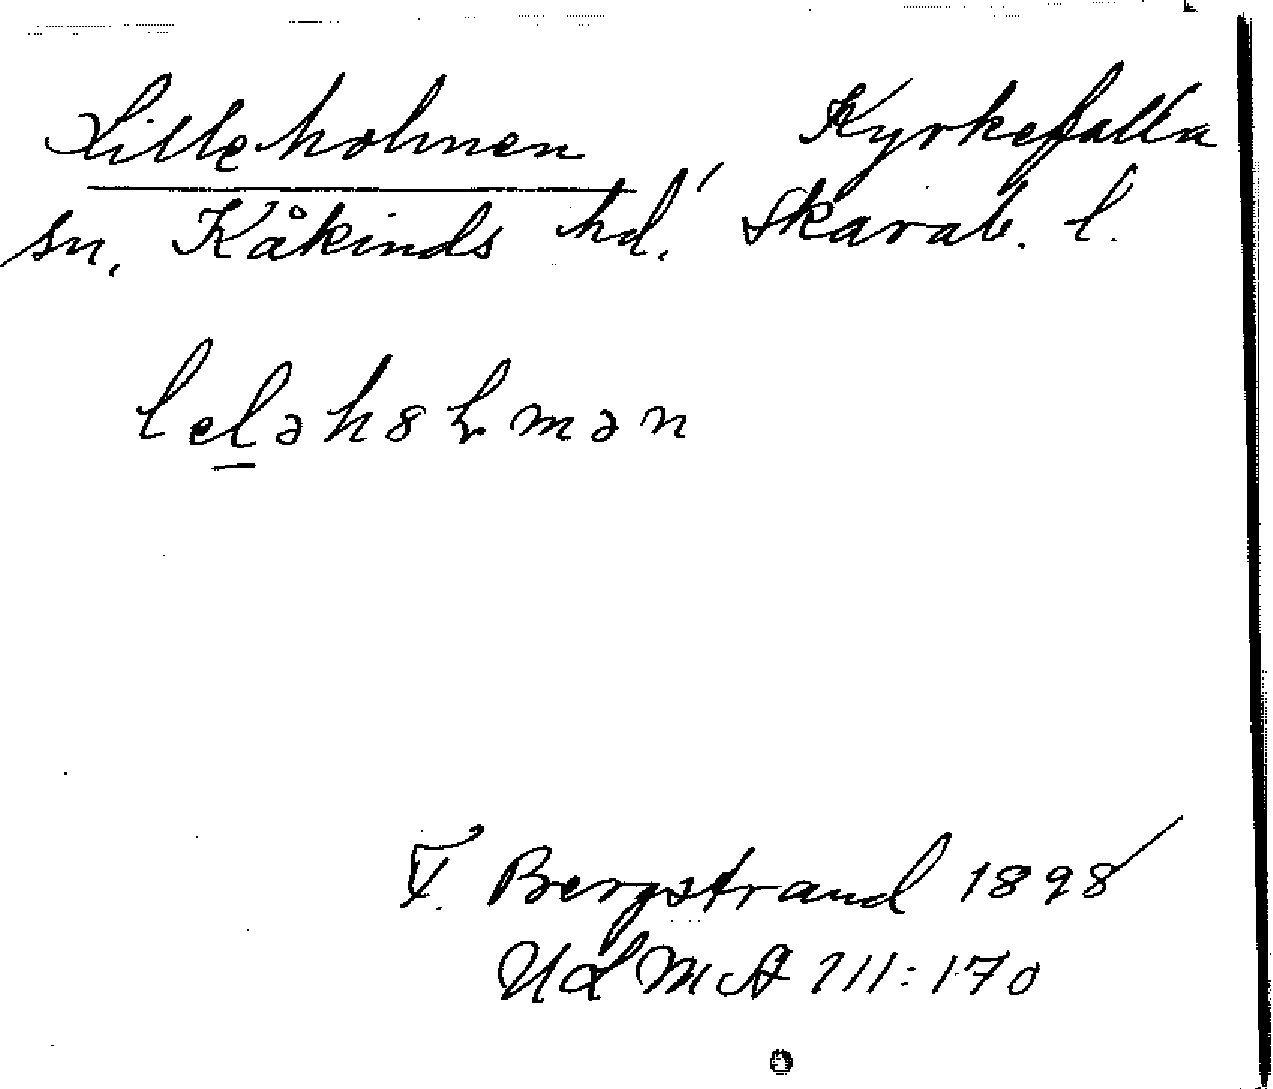 Lilleholmen, Kyrkefalla
sn, Kåkinds hd. Skarab. l.
lelǝh8ɭmǝn
F. Bergstrand 1898
ULMA 111:170